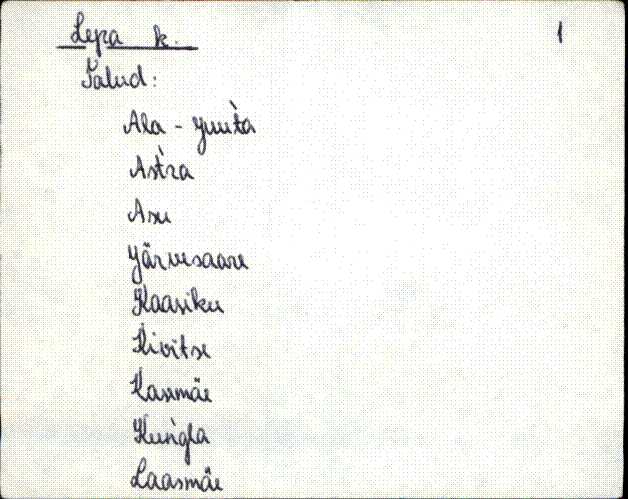 Lepa k. 1
Talud:
Ala-Juuta
Astra
Asu
Järvesaare
Kaasiku
Kivitse
Kasemäe
Kungla
Laasmäe